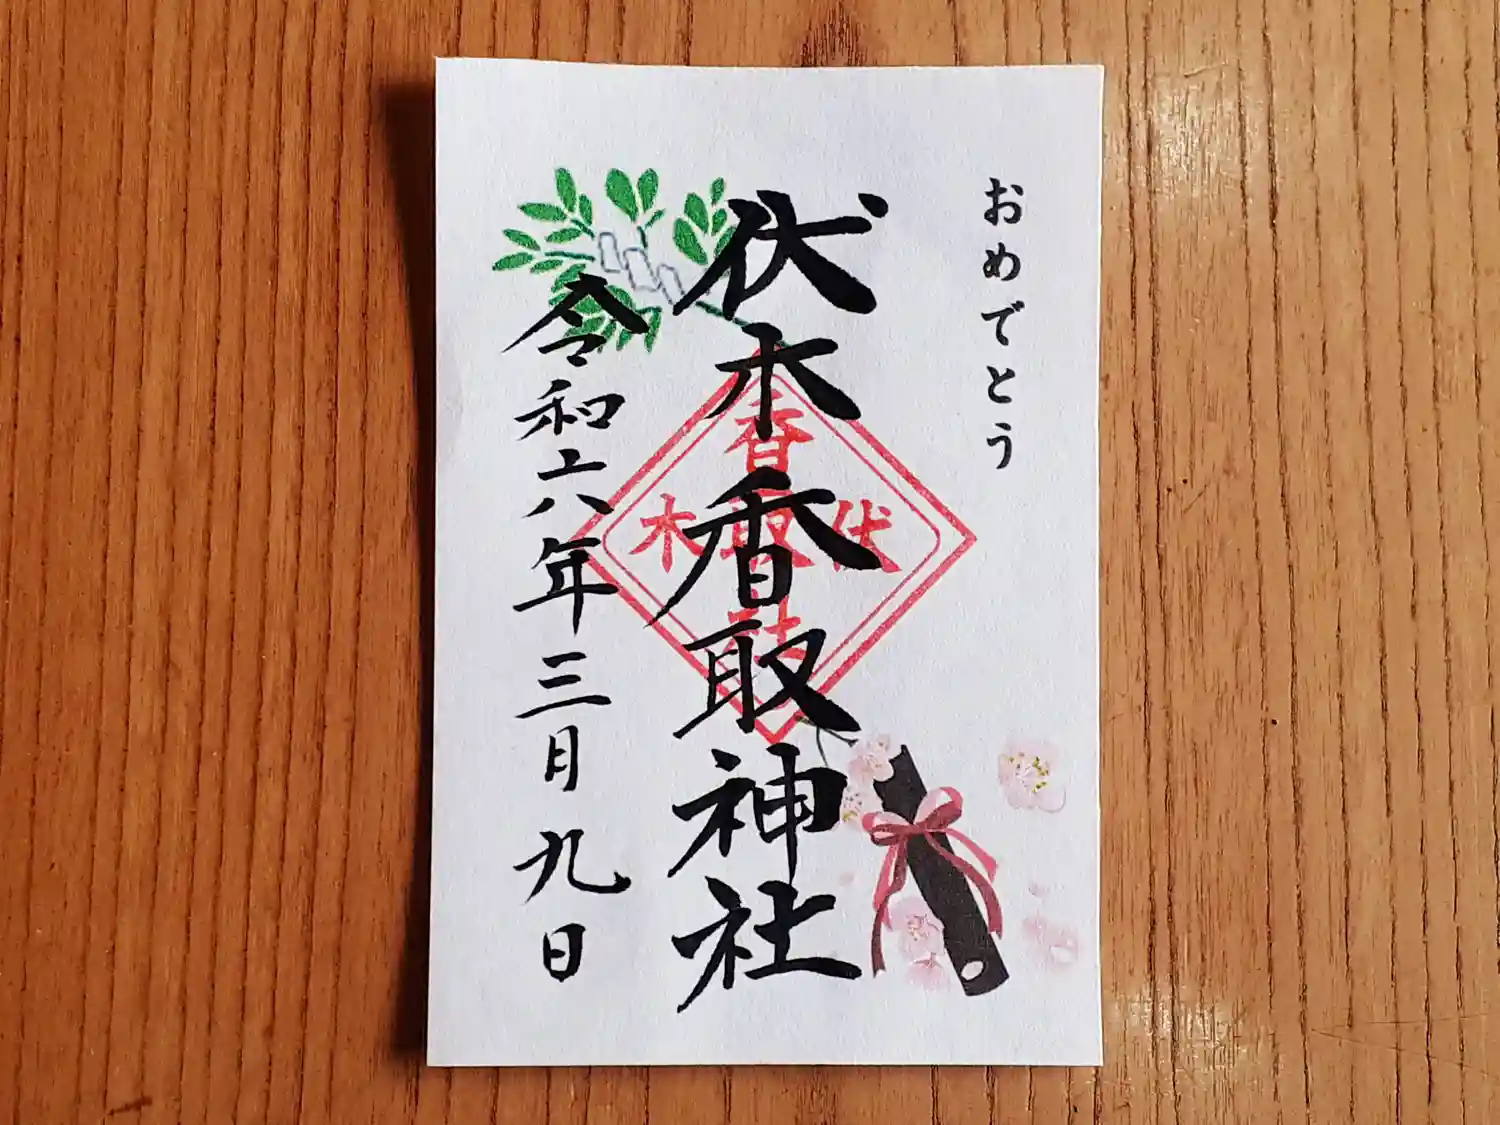 おめでとう
伏木香取神社
令和六年三月九日
香取社
伏木